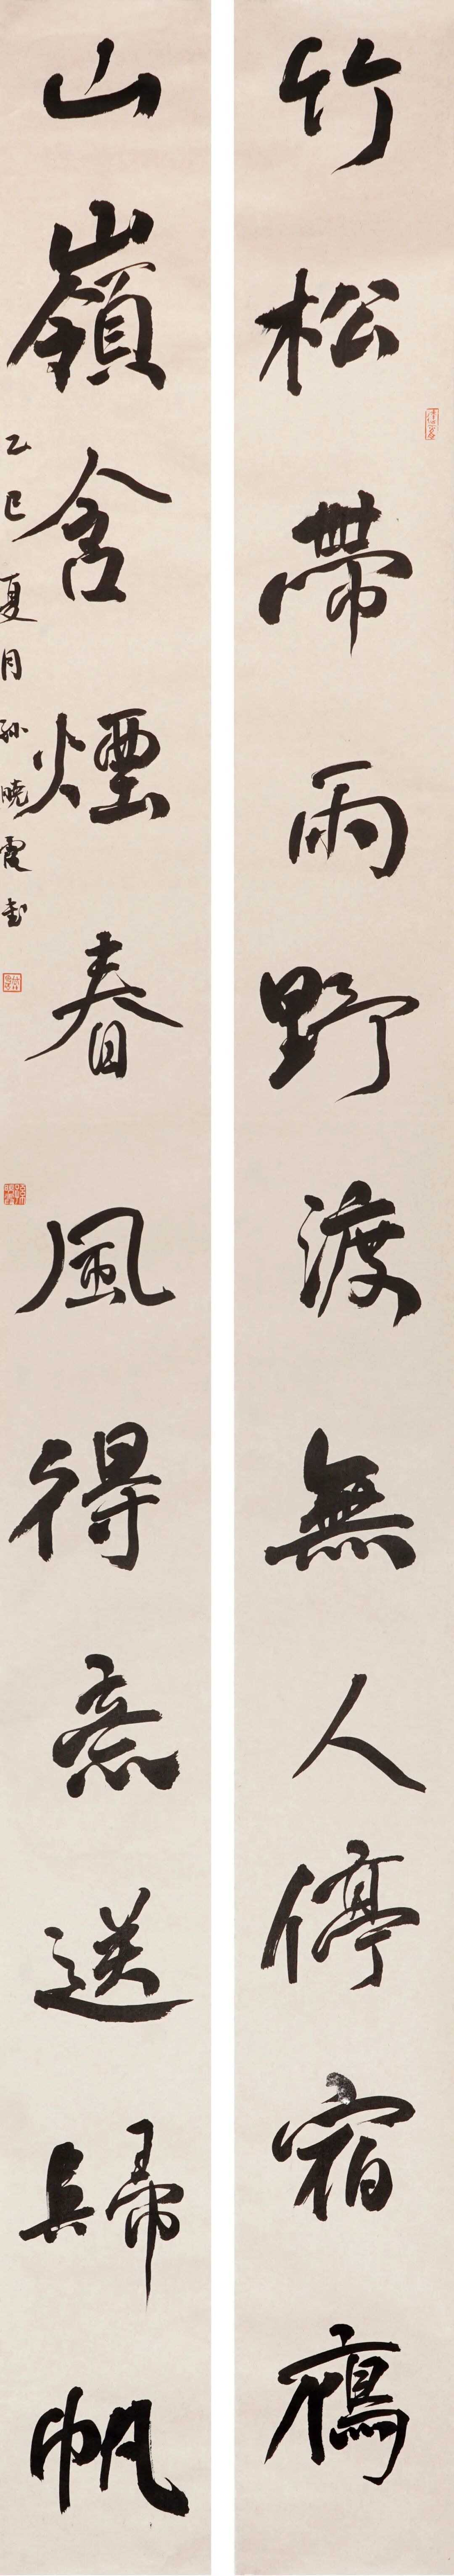 竹松帶雨野渡無人停宿鴈
山嶺含煙春風得意送歸帆
乙巳夏月孙晓霞書